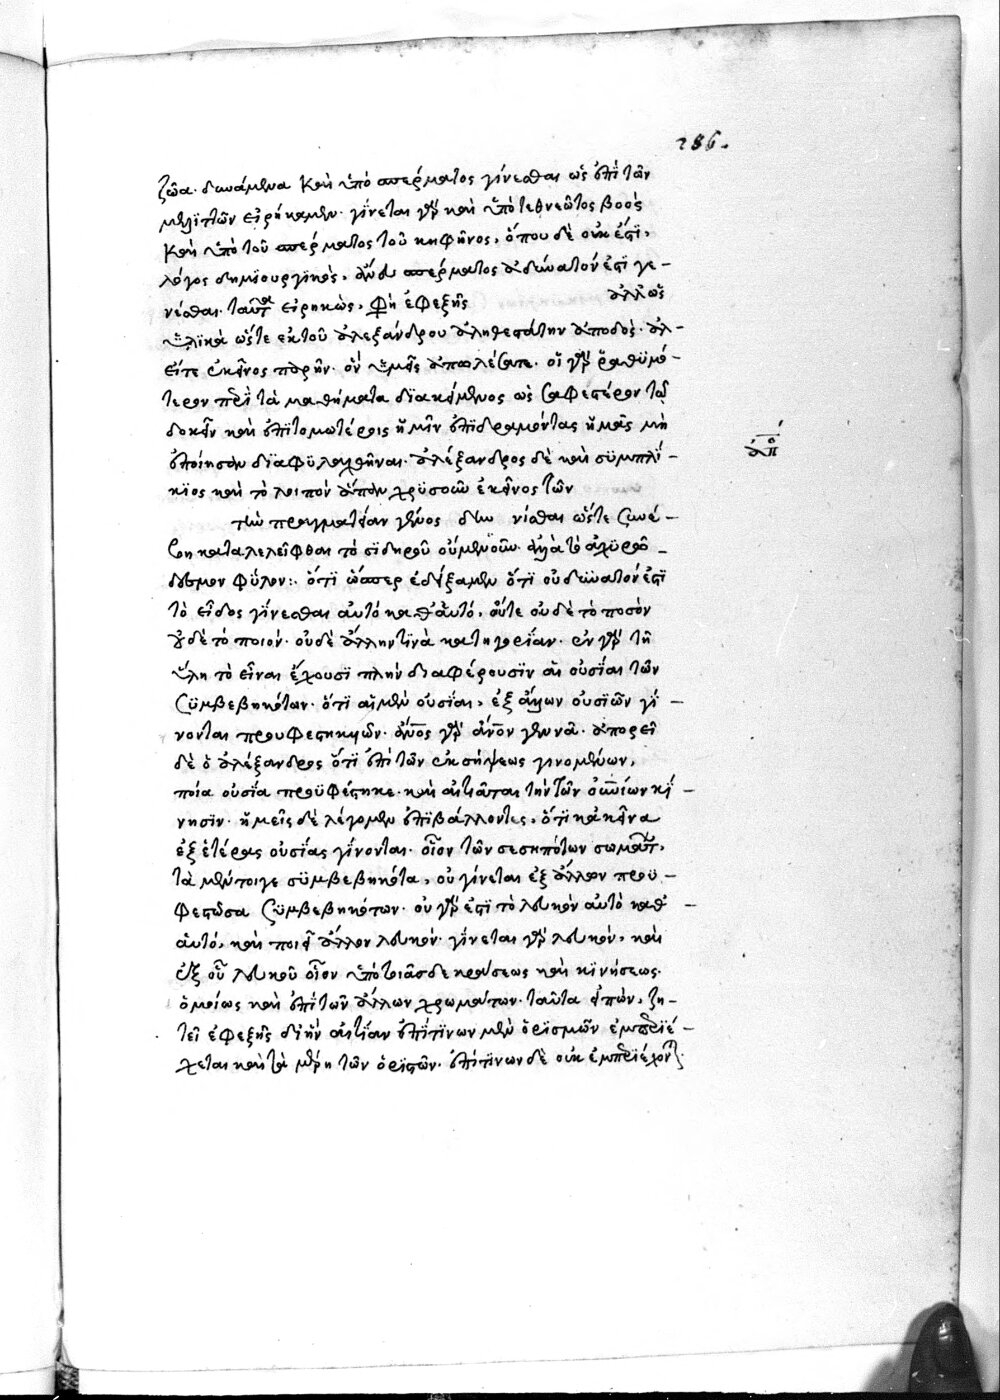 286.
ζῶα. δυνάμενα καὶ ὑπὸ σπέρματος γίνεσθαι ὡς ἐπὶ τῶν
μελιττῶν εἰρήκαμεν. γίνεται γὰρ καὶ ὑπὸ τεθνεῶτος βοὸς
καὶ ὑπὸ τοῦ σπέρματος τοῦ κηφῆνος, ὅπου δὲ οὐκ ἔστι,
λόγος δημιουργικὸς, ἄνευ σπέρματος ἀδύνατον ἐστὶ γε-
νέσθαι. ταῦτα εἰρηκὼς, φησὶ ἐφεξῆς ἀλλ' ὡς
ὑλικὰ ὥστε ἐκ τοῦ ἀλεξάνδρου ἀληθεστάτην
εἴτε ἐκεῖνος ὑμεῖς ἀπωλέσατε. οἱ γὰρ ῥαθυμό-
τερον περὶ τὰ μαθήματα διακείμενος ὡς σαφεστέρον τοῦ
δοκεῖν καὶ ἐπιτομωτέροις ἡμῖν ἐπιδραμόντας ἡμᾶς μὴ
ἐποίησαν διαφυλαχθῆναι. ἀλέξανδρος δὲ καὶ συμπλί-
κιος καὶ τὸ λοιπὸν ἅπαν χρυσοῦν ἐκεῖνος τῶν
τὴν πραγματείαν γένος νέσθαι ὥστε συνέ-
βη καταλελεῖφθαι τὸ σιδηροῦ οὐμενοῦν ἀλλὰ τὸ ἀχυρῶ-
δυσμον φῦλον:. ὅτι ὥσπερ ἐδείξαμεν ὅτι οὐ δυνατὸν ἐστὶ
τὸ εἶδος γίνεσθαι αὐτὸ καθ' αὑτό, οὕτε οὐδὲ τὸ ποσὸν
οὐδὲ τὸ ποιόν. οὐδὲ ἄλλην τινὰ κατηγορίαν. ἐν γὰρ τῇ
ὕλη τὸ εἶναι ἔχουσι πλὴν διαφέρουσιν αἱ οὐσίαι τῶν
συμβεβηκότων. ὅτι αἱ μὲν οὐσίαι, ἐξ ἄλλων οὐσιῶν γί-
νονται προυφεστηκυιῶν. ἄνος γὰρ ἄνον γεννᾶ. ἀπορεῖ
δὲ ὁ ἀλέξανδρος ὅτι ἐπὶ τῶν ἐκ σήψεως γινομένων,
ποία οὐσία προϋφέστηκε. καὶ αἰτιᾶται τὴν τῶν οὐνίων κί-
νησιν. ἡμεῖς δὲ λέγομεν ἐπιβάλλοντες, ὅτι κἀκεῖνα
ἐξ ἑτέρας οὐσίας γίνονται. οἷον τῶν σεσηπότων σωμάτ,
τὰ μέντοιγε συμβεβηκότα, οὐ γίνεται ἐξ ἄλλων προϋ-
φεστῶσα συμβεβηκότων. οὐ γάρ ἐστι τὸ λευκὸν αὐτὸ καθ'
αὑτό, καὶ ποιεῖ ἄλλον λευκόν. γίνεται γὰρ λευκόν, καὶ
ἐξ οὗ λευκοῦ οἷον ὑπὸ τοιᾶσδε κράσεως καὶ κινήσεως.
ὁμοίως καὶ ἐπὶ τῶν ἄλλων χρωμάτων. ταῦτα εἰπών, ζη-
τεῖ ἐφεξῆς δι' ἣν αἰτίαν ἐπί τινων μὲν ὁρισμῶν ἐμπεριέ-
χεται καὶ τὰ μέρη τῶν ὁριστῶν. ἐπί τινων δὲ οὐκ ἐμπεριέχοντ.